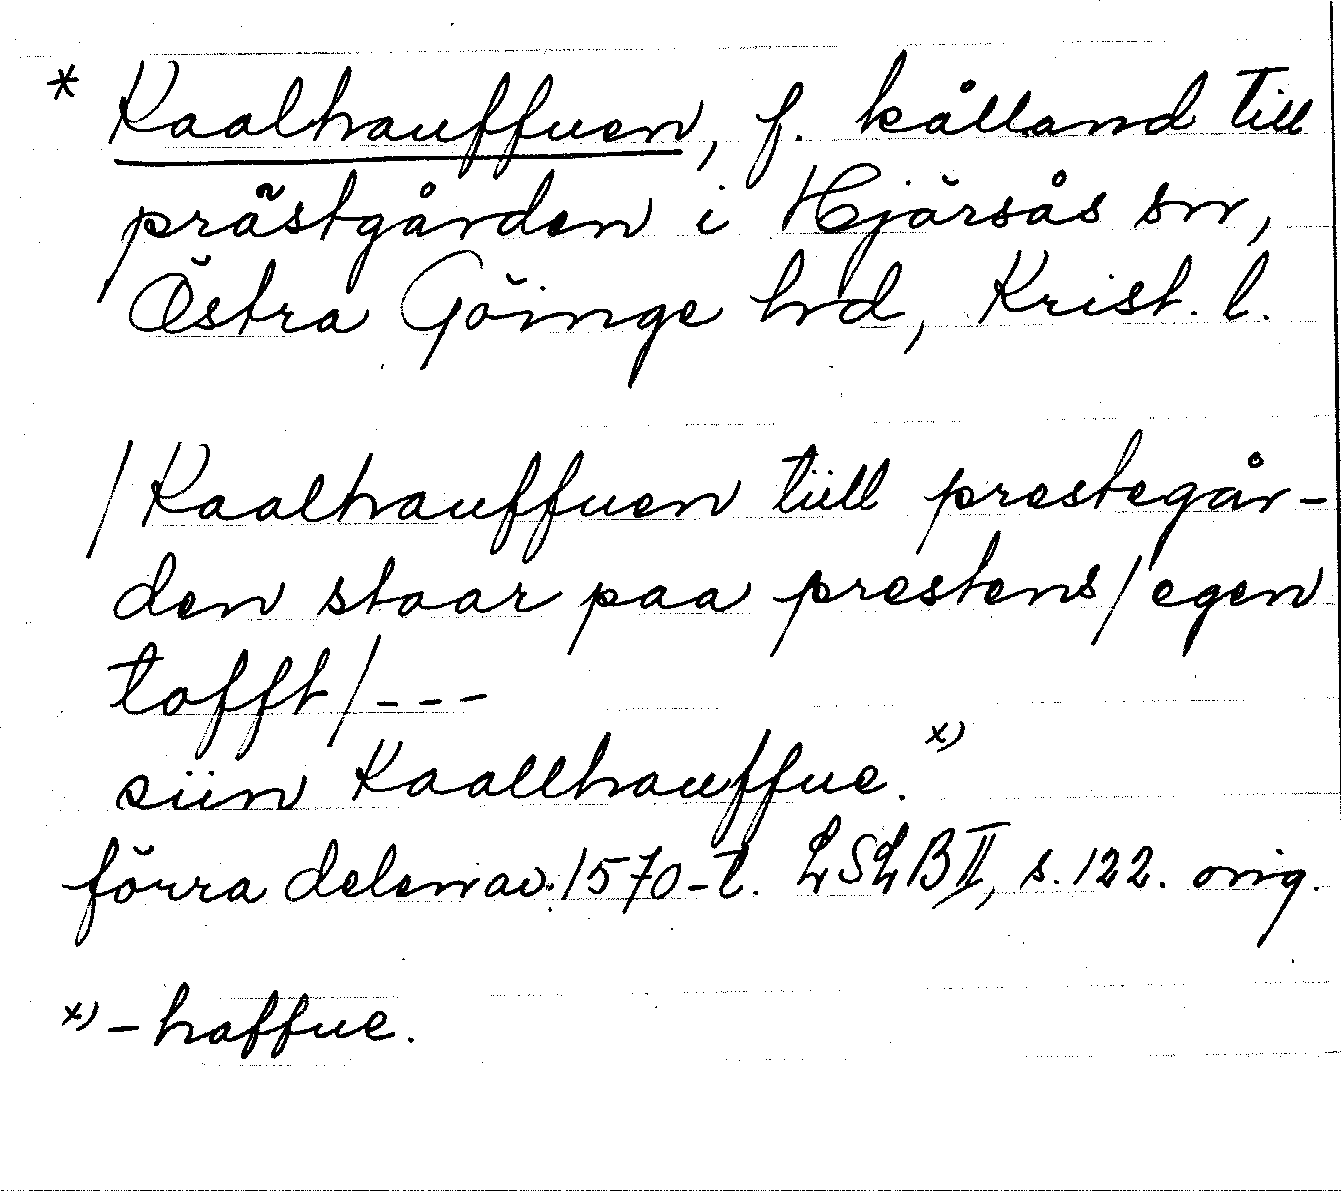 * Kaalhauffuen, f. kålland till
prästgården i Hjärsås sn,
Östra Göinge hd, Krist. l.
/Kaalhauffuen tiill prestegår-
den staar paa prestens/egen
tofft/---
siin Kaallhauffue.x)
förra delen av 1570-t. LSLB II, s. 122. orig.
x) -haffue.